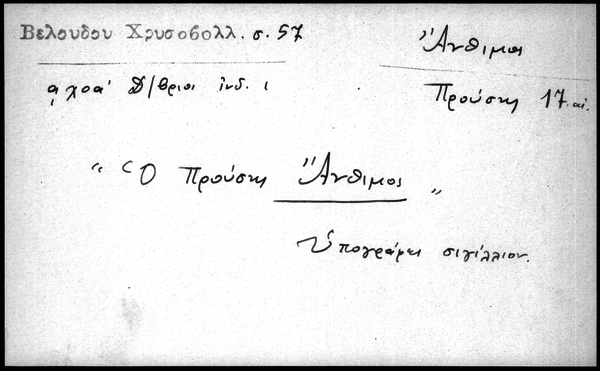 Βελουδου Χρυσοβολλ. σ. 57
Ἄνθιμος
͵αχοα' Δ/βριοι ἰνδ. ι
Προύσης 17. αἰ.
" Ὁ Προύσης Ἄνθιμος "
Ὑπογράφει σιγίλλιον.